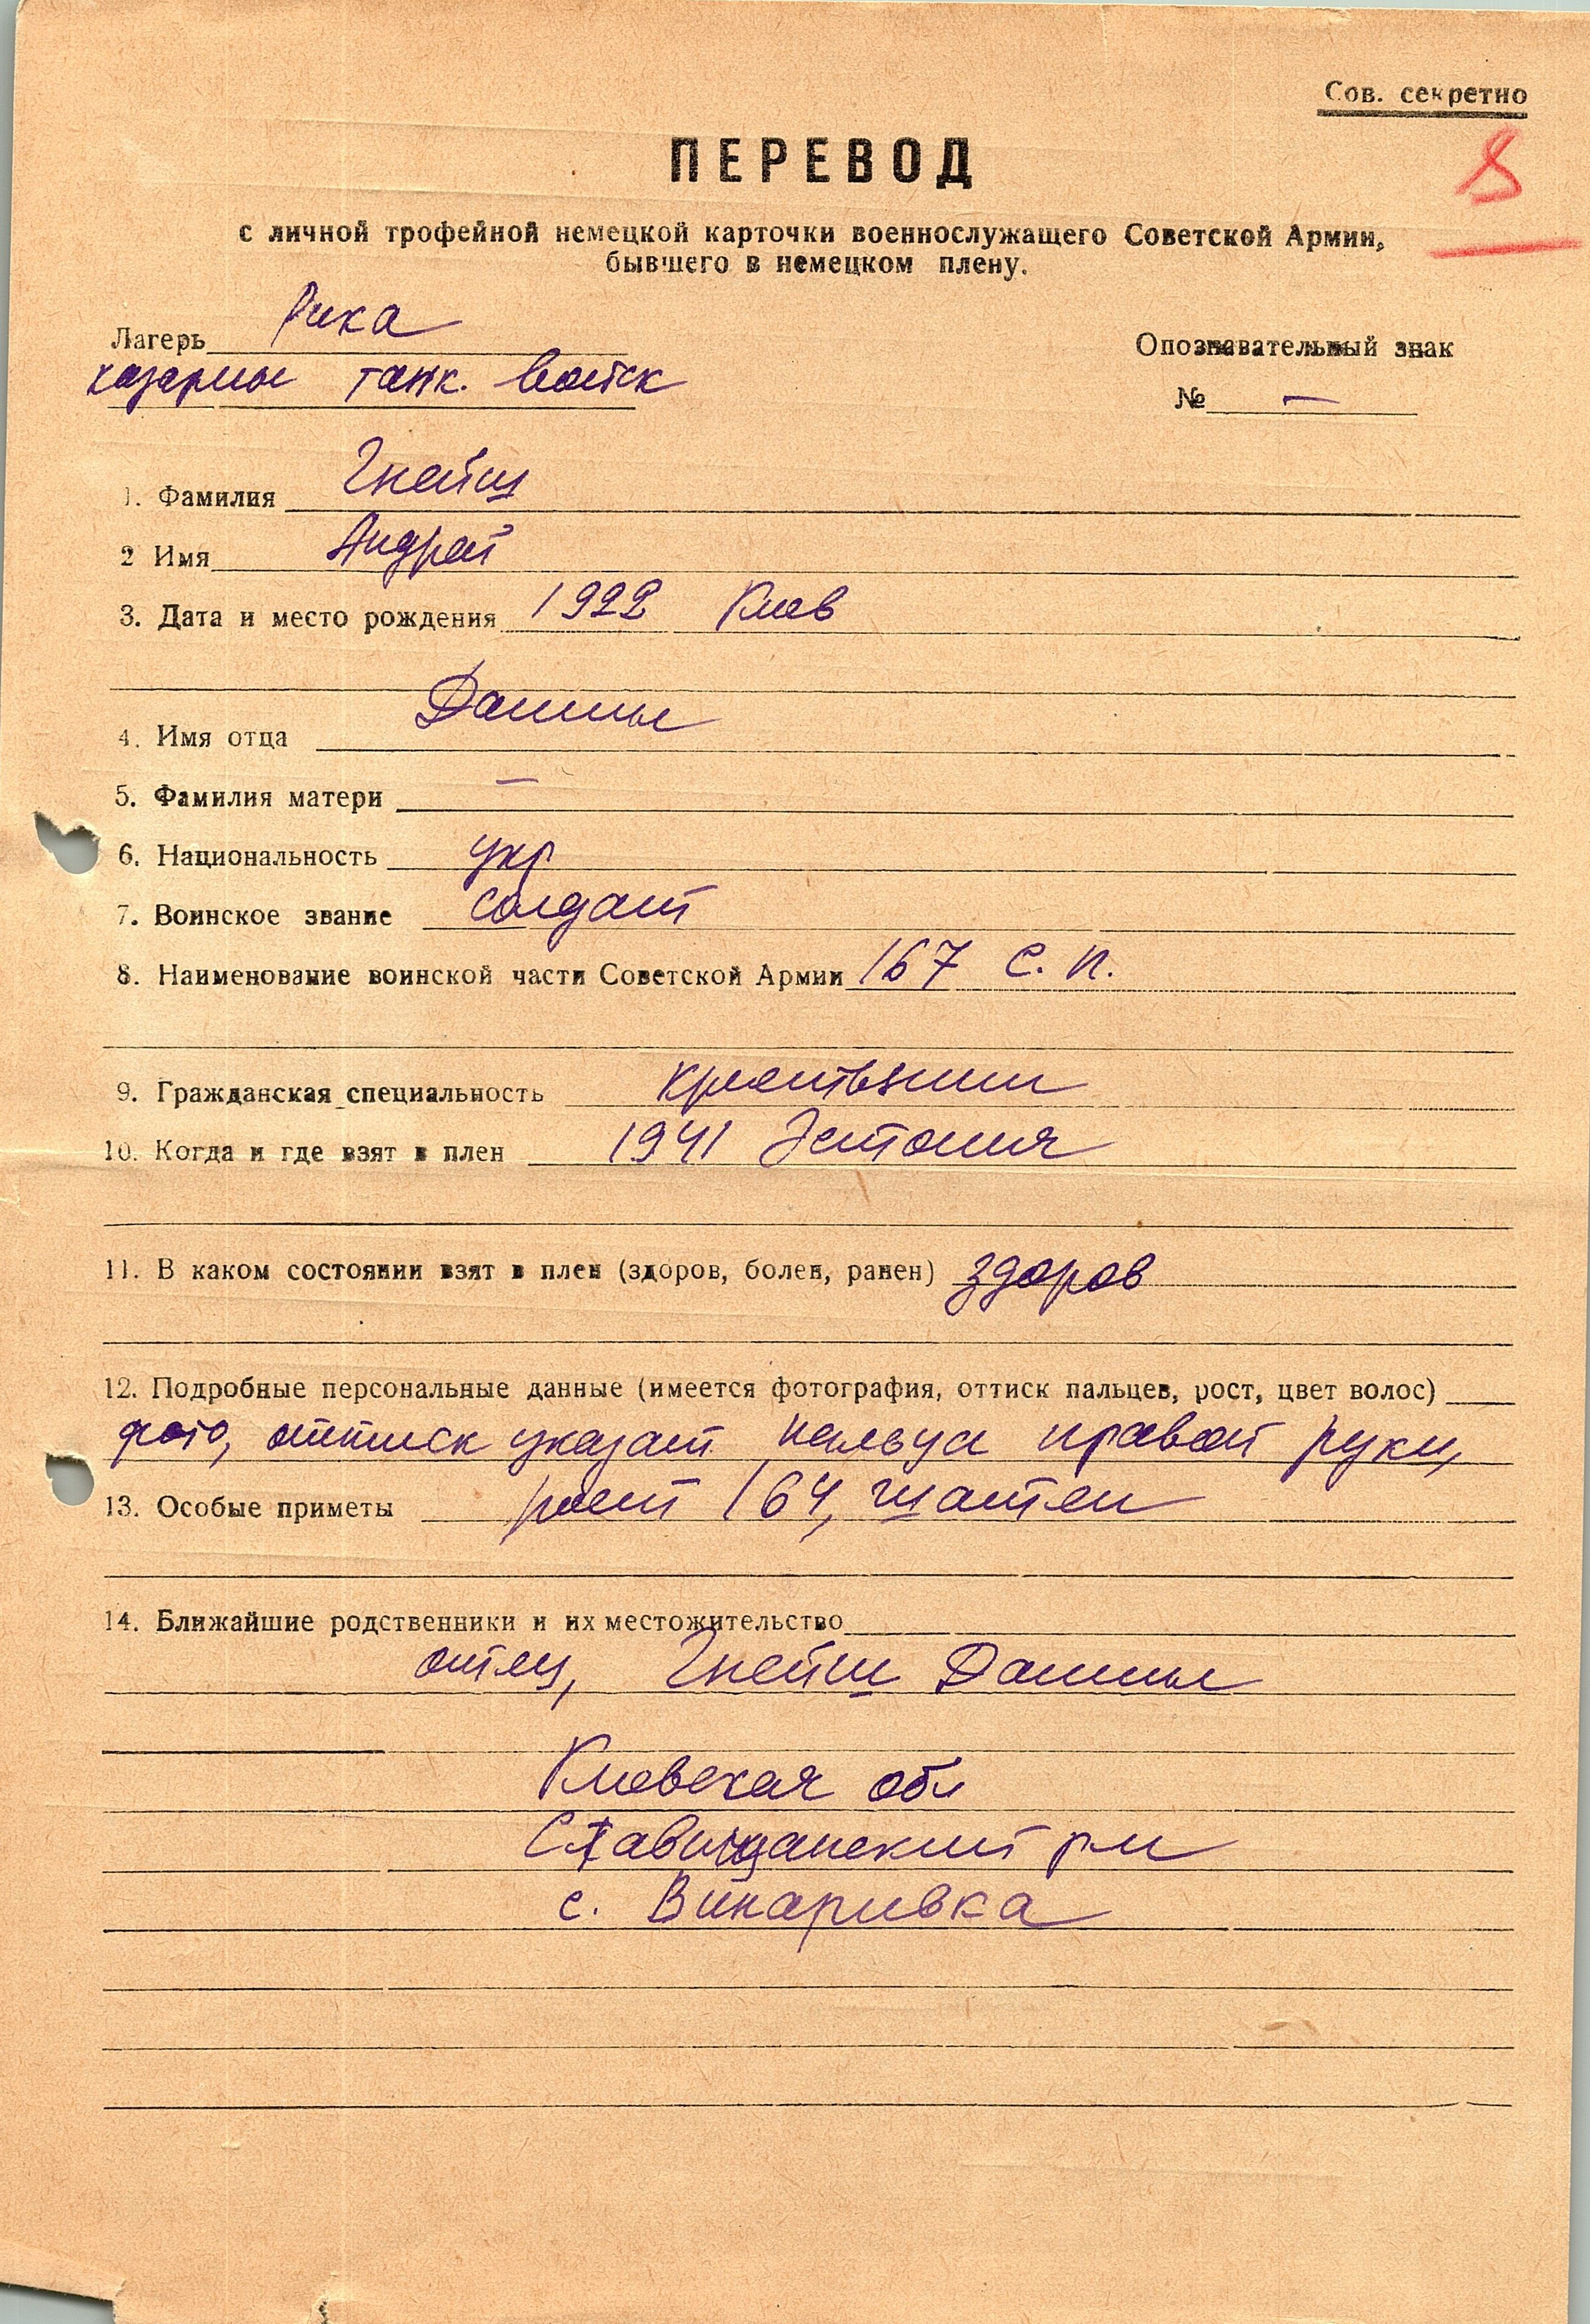 Сов. секретно
8
ПЕРЕВОД
с личной трофейной немецкой карточки военнослужащего Советской Армии,
бывшего в немецком плену.
Лагерь Рика
казармы танк. войск
Опознавательный знак
№ —
1. Фамилия Гнейш
2 Имя Андрей
3. Дата и место рождения 1922 Киев
4. Имя отца Данил
5. Фамилия матери —
6. Национальность укр
7. Воинское звание солдат
8. Наименование воинской части Советской Армии 167 с. п.
9. Гражданская специальность крестьянин
10. Когда и где взят в плен 1941 Эстония
11. В каком состоянии взят в плен (здоров, болен, ранен) здоров
12. Подробные персональные данные (имеется фотография, оттиск пальцев, рост, цвет волос)
фото, оттиск указат пальца правой руки,
13. Особые приметы рост 164, шатен
14. Ближайшие родственники и их местожительство
отец, Гнейш Данил
Киевская обл
Ставищанский рн
с. Винаривка